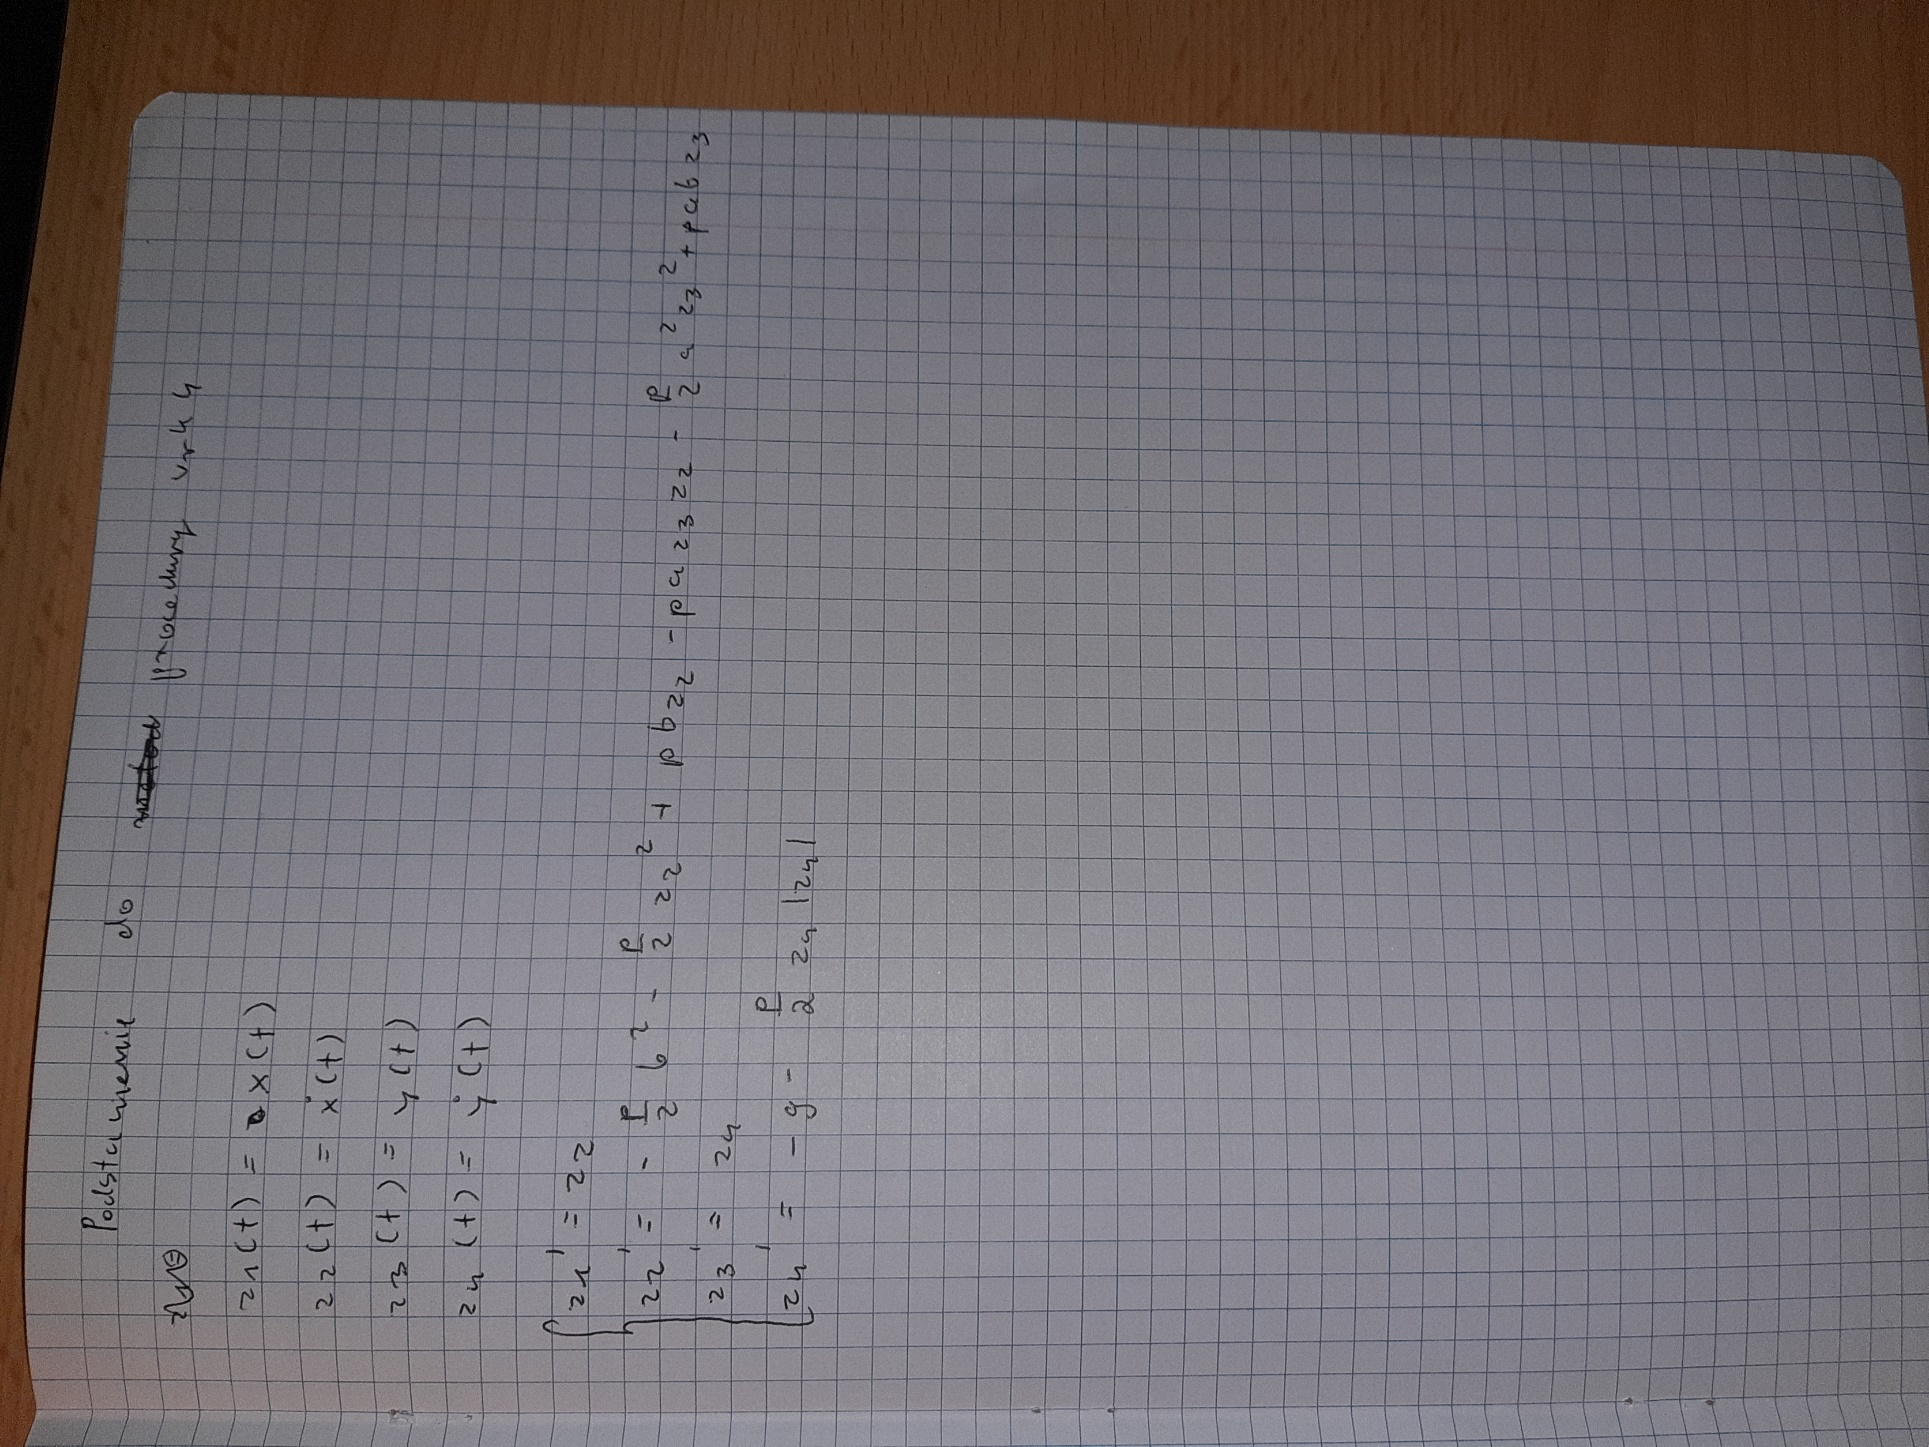 Podstawienie do procedury vrk4
z1(t) = x(t)
z2(t) = ẋ(t)
z3(t) = y(t)
z4(t) = ẏ(t)
z1' = z2
z2' = - p/2 b² - p/2 z2² + pbz2 - paz3z2 - p/2 a²z3² + pabz3
z3' = z4
z4' = -g - p/2 z4|z4|